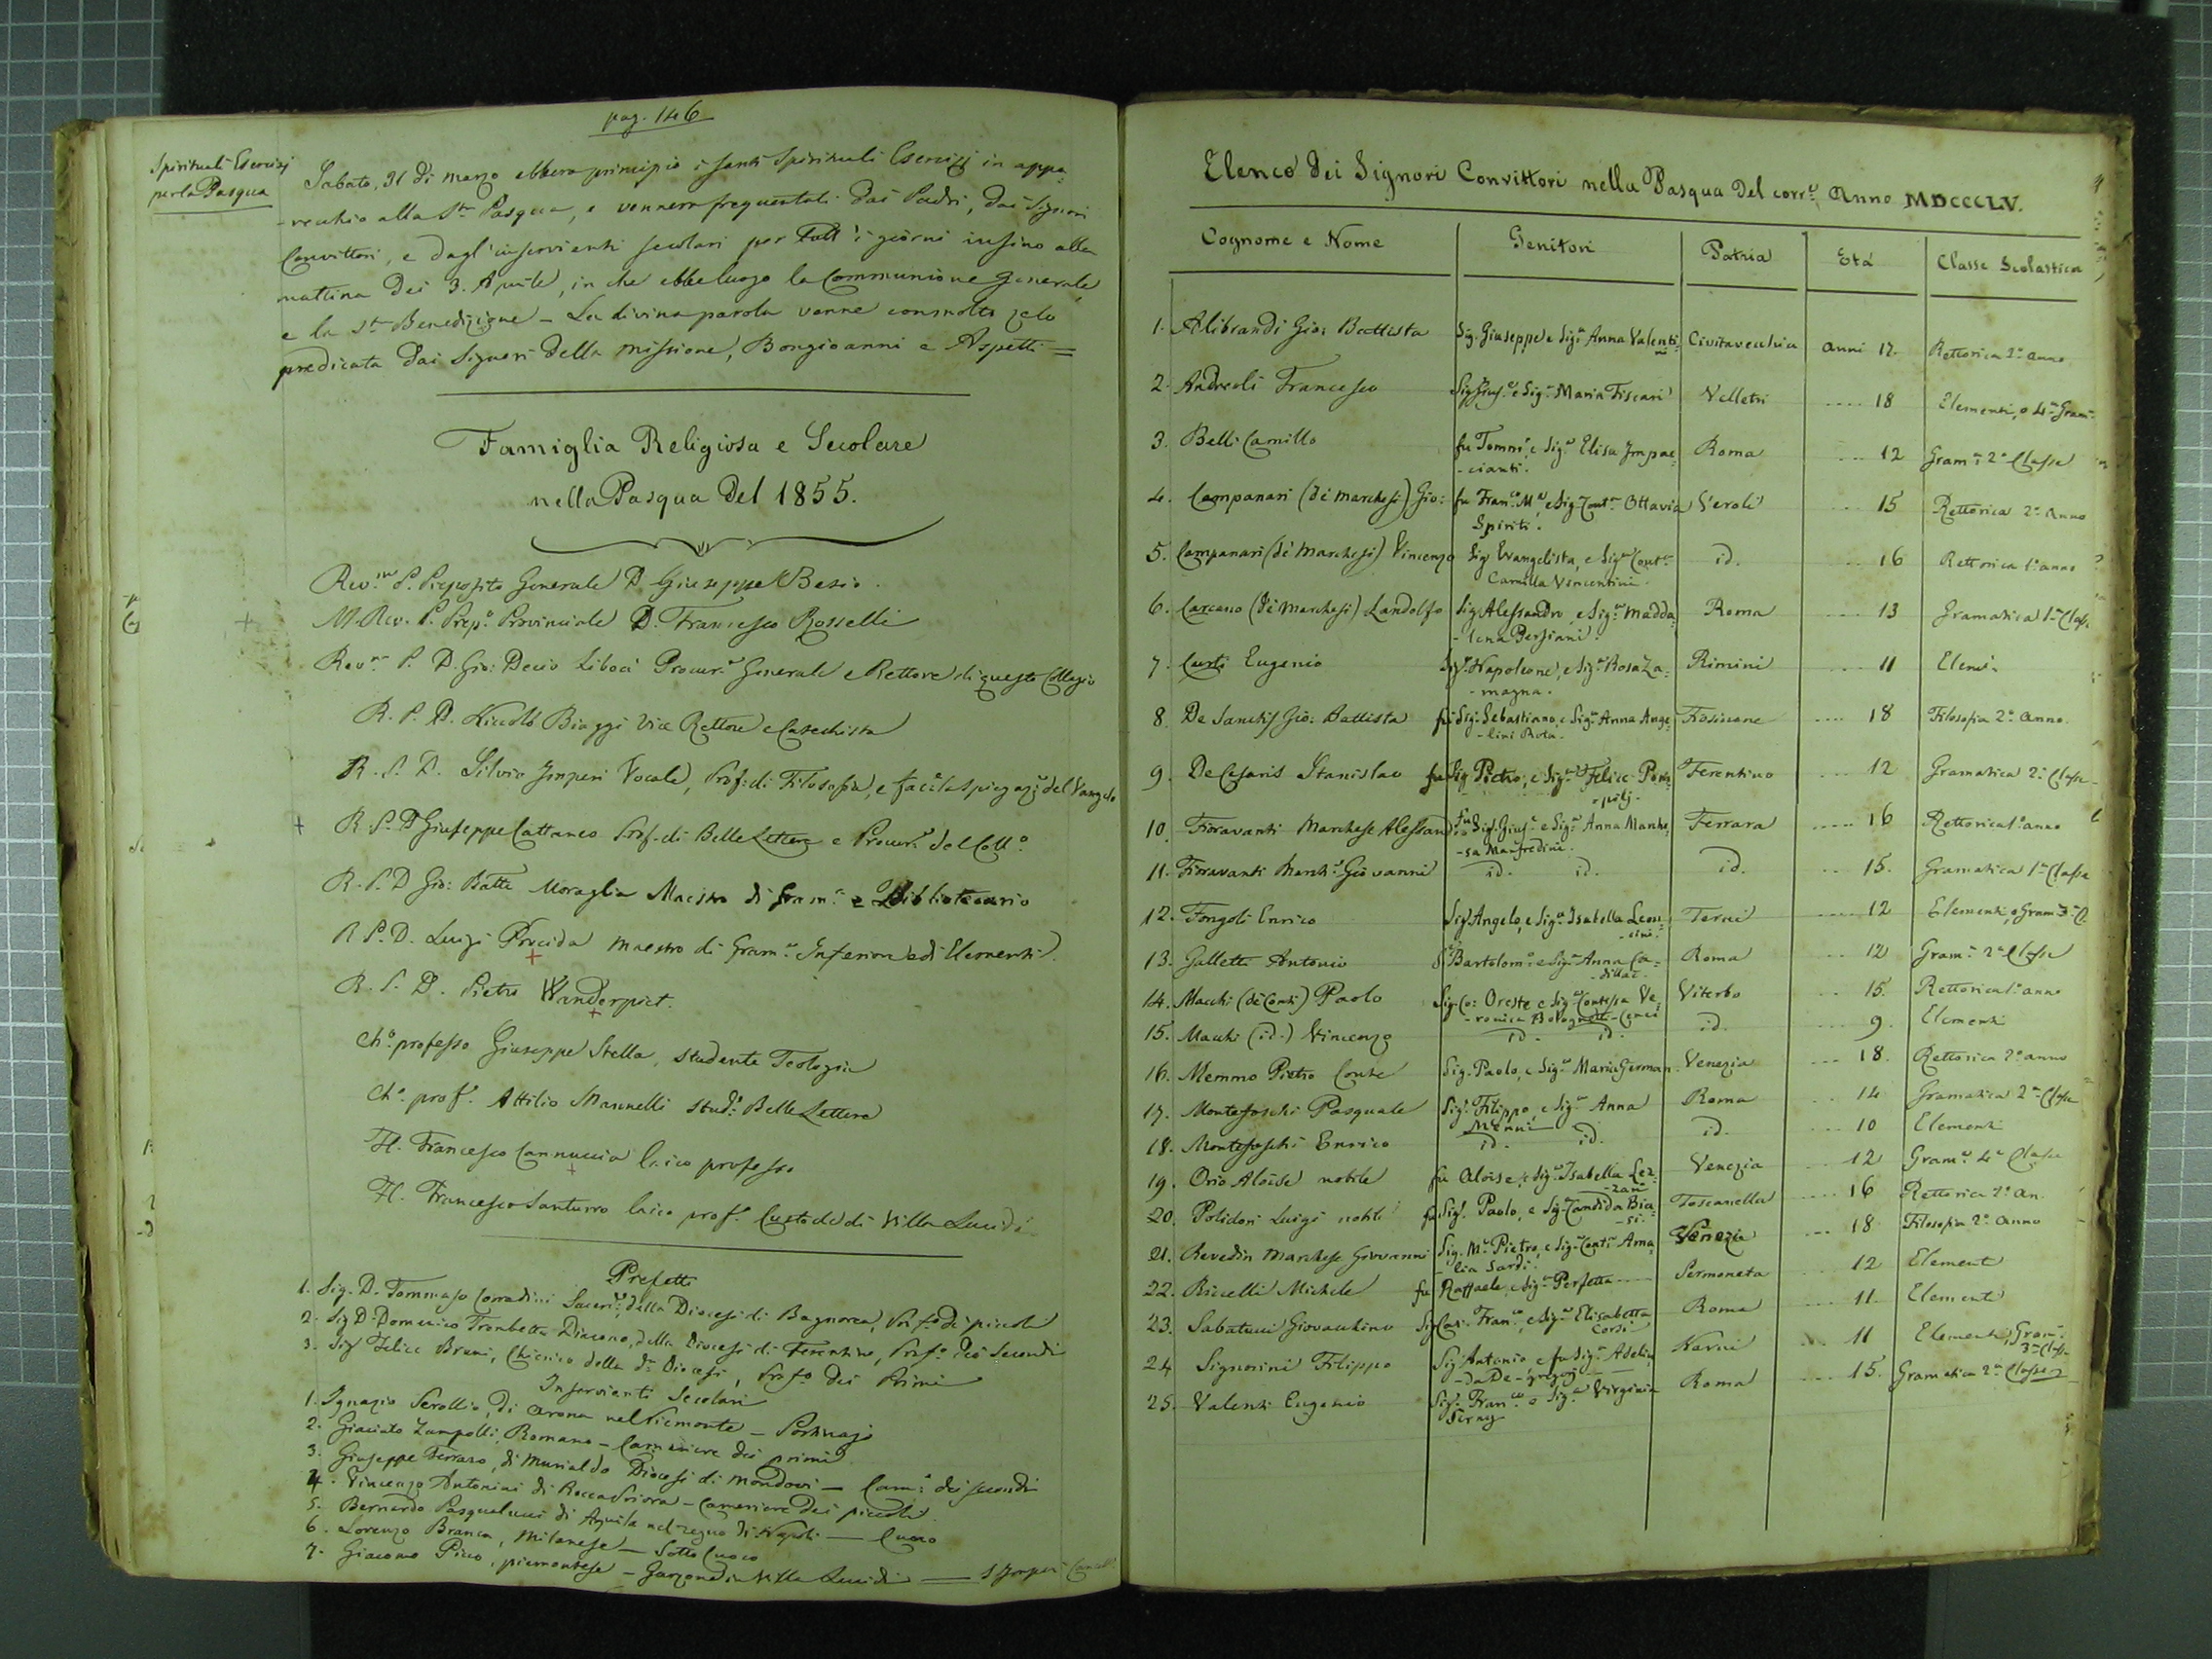 pag. 146
Spirituali Esercizj
per la Pasqua
Sabato, 31 di marzo ebbero principio i santi Spirituali Esercizj in appa-
-recchio alla S.ta Pasqua, e vennero frequentati dai Padri, dai Signori
Convittori, e dagl'inservienti secolari per tutt'i giorni insino alla
mattina dei 3. Aprile, in che ebbe luogo la Communione generale,
e la S.ta Benedizione - La divina parola venne con molto zelo
predicata dai Signori della Missione, Bongioanni e Aspetti =
Famiglia Religiosa e Secolare
nella Pasqua del 1855.
Rev.mo P. Preposito Generale D. Giuseppe Besio.
M. Rev. P. Prep.o Provinciale D. Francesco Rosselli
Rev.mo P. D. Gio: Decio Libois Procur.e Generale e Rettore di questo Collegio
R. P. D. Niccolò Biaggi Vice Rettore e Catechista
R. P. D. Silvio Imperi Vocale, Prof: di Filosofia, e fa la spiegaz.e del Vangelo
R. P. D. Giuseppe Cattaneo Prof. di Belle Lettere e Procur.e del Coll.o
R. P. D. Gio: Batta Moraglia Maestro di Gram.a e Bibliotecario
R. P. D. Luigi Procida maestro di Gram.a Inferiore e di Elementi.
R. P. D. Pietro Wanderpiet.
Ch.o professo Giuseppe Stella, studente Teologia
Ch.o prof.o Attilio Mannelli stud.e Belle Lettere
Fl. Francesco Cannuccia laico professo
Fl. Francesco Santurro laico prof.o Custode di Villa Lucidi.
Prefetti
1. Sig. D. Tommaso Corradini Sacer.e della Diocesi di Bagnorea, Pref.o de' piccoli
2. Sig. D. Domenico Trombetta Diacono, della Diocesi di Ferentino, Pref.o dei Secondi
3. Sig. Felice Bruni, Chierico della d.a Diocesi, Pref.o dei Primi
Inservienti Secolari
1. Ignazio Serollio, di Arona nel Piemonte - Portinajo
2. Giacinto Zampolli, Romano - Cameriere dei primi
3. Giuseppe Ferraro, di Murialdo Diocesi di Mondovì - Cam.e dei secondi
4. Vincenzo Antonini di Rocca Priora - Cameriere dei piccoli
5. Bernardo Pasqualucci di Aquila nel regno di Napoli - Cuoco
6. Lorenzo Branca, Milanese - Sotto Cuoco
7. Giacomo Pico, piemontese - Garzone di Villa Lucidi - S. Imperi Cancell.
Elenco dei Signori Convittori nella Pasqua del corr.e Anno MDCCCLV.
Cognome e Nome | Genitori | Patria | Età | Classe Scolastica
1. Alibrandi Gio: Battista | Sig. Giuseppe e Sig.a Anna Valentini | Civitavecchia | anni 17. | Rettorica 2.o anno
2. Andreoli Francesco | Sig. Gius.e e Sig.a Maria Fiscari | Velletri | 18 | Elementi, o 4.a Gram.a
3. Belli Camillo | fu Tommº, e Sig.a Elisa Impac-cianti. | Roma | 12 | Gram.a 2.a Classe
4. Campanari (de' Marchesi) Gio: | fu Fran.co M.e e Sig. Cont.a Ottavia Spiriti. | Veroli | 15 | Rettorica 2.o Anno
5. Campanari (de' Marchesi) Vincenzo | Sig. Evangelista, e Sig.a Cont.a Camilla Vincentini. | id. | 16 | Rettorica 1.o anno
6. Carcano (de' Marchesi) Landolfo | Sig. Alessandro, e Sig.a Madda-lena Persiani. | Roma | 13 | Gramatica 1.a Class.
7. Curti Eugenio | Sig. Napoleone, e Sig.a Rosa Za-magna. | Rimini | 11 | Elem.i
8. De Sanctis Gio: Battista | fu Sig. Sebastiano, e Sig.a Anna Ange-lini Rota. | Frosinone | 18 | Filosofia 2.o Anno.
9. De Cesaris Stanislao | fu Sig. Pietro, e Sig.a Felice Pom-pilj. | Ferentino | 12 | Gramatica 2.a Classe
10. Fioravanti Marchese Alessandro | fu Sig. Gius.e e Sig.a Anna Marche-sa Manfredini. | Ferrara | 16 | Rettorica 1.o anno
11. Fioravanti March.e Giovanni | id. id. | id. | 15. | Gramatica 1.a Classe
12. Fongoli Enrico | Sig. Angelo, e Sig.a Isabella Leon-cini. | Terni | 12 | Elementi, o Gram. 3.a C
13. Galletti Antonio | S. Bartolom.o e Sig.a Anna Ca-dillac. | Roma | 12 | Gram.a 2.a Classe
14. Macchi (de' Conti) Paolo | Sig. Co: Oreste e Sig.a Contessa Ve-ronica Bolognetti-Cenci | Viterbo | 15. | Rettorica 1.o anno
15. Macchi (id.) Vincenzo | id. id. | id. | 9. | Elementi
16. Memmo Pietro Conte | Sig. Paolo, e Sig.a Maria German | Venezia | 18. | Rettorica 2.o anno
17. Montefoschi Pasquale | Sig. Filippo, e Sig.a Anna Menni | Roma | 14 | Gramatica 2.a Classe
18. Montefoschi Enrico | id. id. | id. | 10 | Elementi
19. Orio Aloise nobile | fu Aloise, e Sig.a Isabella Lez-zani | Venezia | 12 | Gram.a 4.a Classe
20. Polidori Luigi nobile | fu Sig. Paolo, e Sig.a Candida Bia-si. | Toscanella | 16 | Rettorica 2.o An.
21. Revedin Marchese Giovanni | Sig. M.e Pietro, e Sig.a Cont.a Ama-lia Sardi. | Venezia | 18 | Filosofia 2.o Anno
22. Riccelli Michele | fu Raffaele, e Sig.a Perfetta | Sermoneta | 12 | Elementi
23. Sabatucci Giovacchino | Sig. Cav. Fran.co, e Sig.a Elisabetta Corsi | Roma | 11. | Elementi
24. Signorini Filippo | Sig. Antonio, e fu Sig.a Adelia | Narni | 11 | Elementi, Gram. 3.a Class.
25. Valenti Eugenio | Sig. Fran.co e Sig.a Virginia Serny | Roma | 15. | Gramatica 2.a Classe